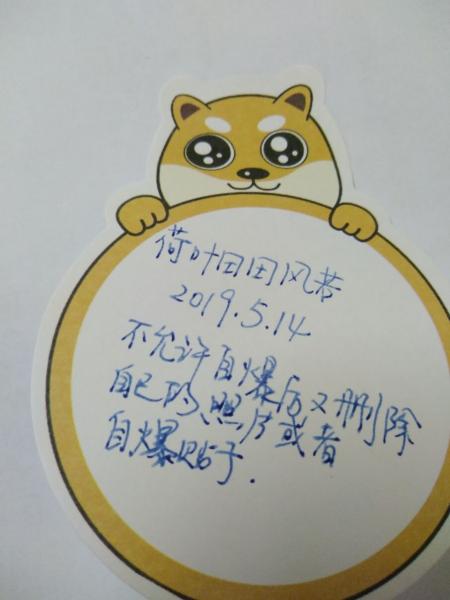 荷叶田田风若
2019.5.14
不允许自爆后又删除
自己的照片或者
自爆贴子.